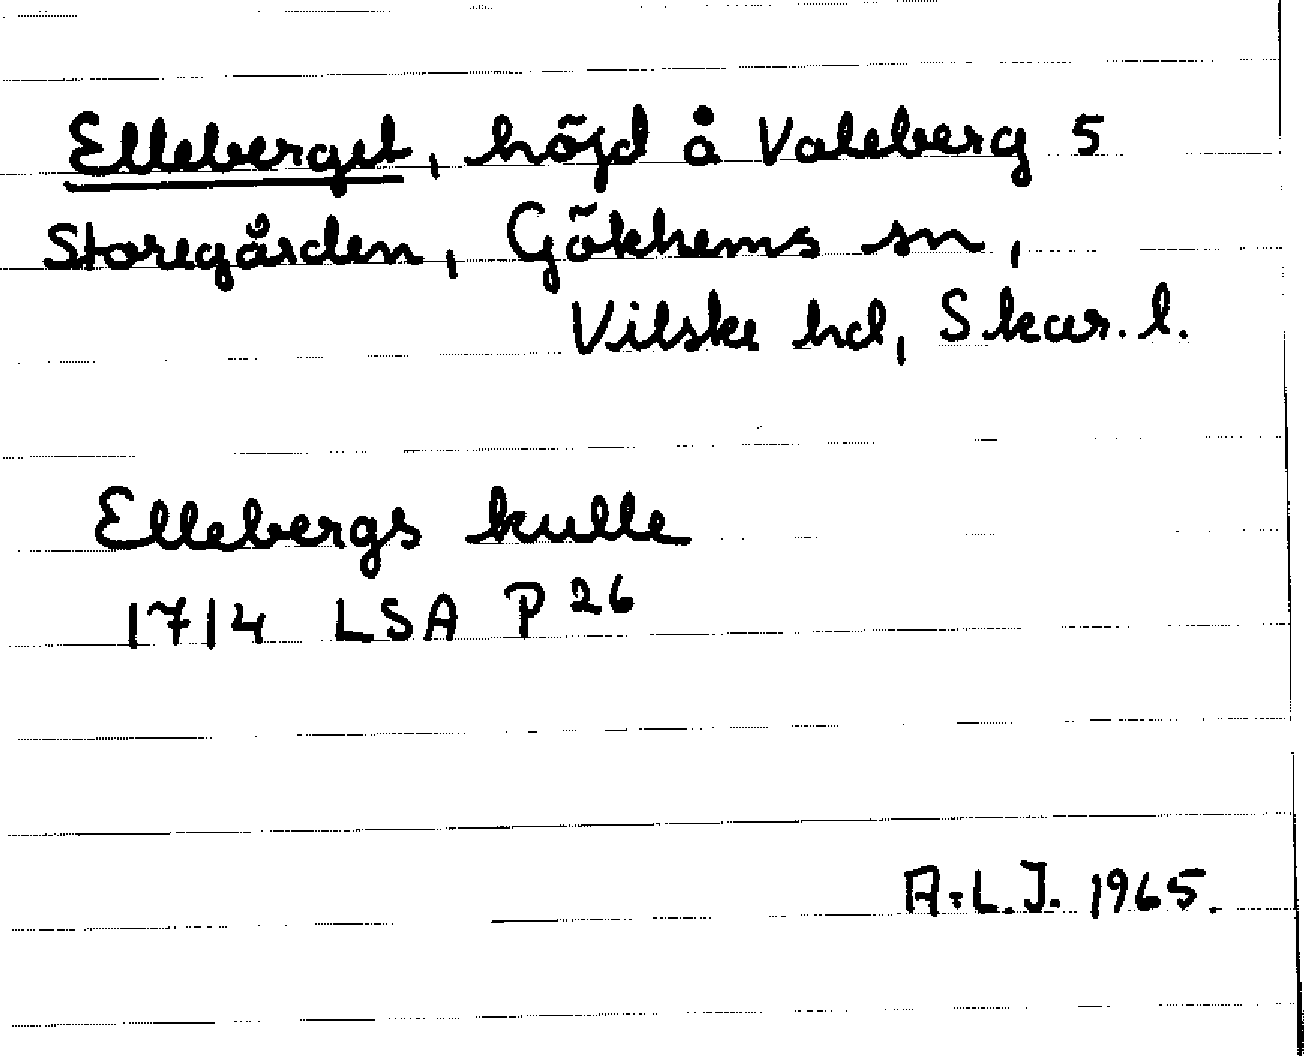 Elleberget, höjd å Valeberg 5
Storegården, Gökhems sn,
Vilske hd, Skar. l.
Ellebergs kulle
1714 LSA P 26
A-L.J. 1965.